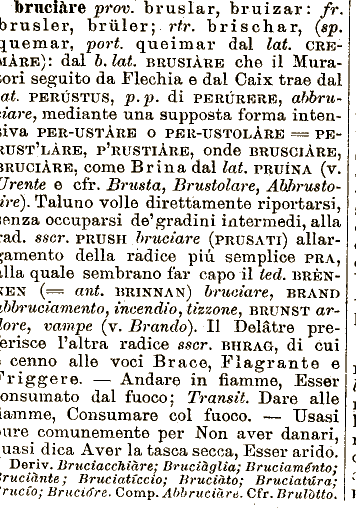 bruciàre prov. bruslar, bruizar: fr.
brusler, brüler; rtr. brischar, (sp.
quemar, port. queimar dal lat. CRE-
MÀRE): dal b. lat. BRUSIÀRE che il Mura-
tori seguito da Flechia e dal Caix trae dal
lat. PERÚSTUS, p. p. di PERÚRERE, abbru-
ciare, mediante una supposta forma inten-
siva PER-USTÀRE O PER-USTOLÀRE = PE-
RUST'LÀRE, P'RUSTIÀRE, onde BRUSCIÀRE,
BRUCIÀRE, come Brina dal lat. PRUÍNA (v.
Urente e cfr. Brusta, Brustolare, Abbrusto-
ire). Taluno volle direttamente riportarsi,
senza occuparsi de'gradini intermedi, alla
rad. sscr. PRUSH bruciare (PRUSATI) allar-
gamento della radice piú semplice PRA,
alla quale sembrano far capo il ted. BRÈN-
NEN (= ant. BRINNAN) bruciare, BRAND
abbruciamento, incendio, tizzone, BRUNST ar-
dore, vampe (v. Brando). Il Delâtre pre-
ferisce l'altra radice sscr. BHRAG, di cui
è cenno alle voci Brace, Flagrante e
Friggere. — Andare in fiamme, Esser
consumato dal fuoco; Transit. Dare alle
fiamme, Consumare col fuoco. — Usasi
pure comunemente per Non aver danari,
quasi dica Aver la tasca secca, Esser arido.
Deriv. Bruciacchiàre; Bruciàglia; Bruciaménto;
Bruciànte; Bruciatíccio; Bruciàto; Bruciatúra;
Brucío; Brucióre. Comp. Abbruciàre. Cfr. Brulòtto.